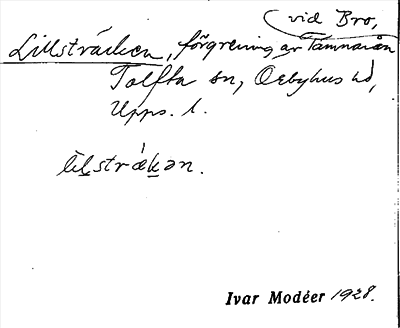 vid Bro,
Lillsträcken, förgrening av Tämnarån
Tolfta sn, Örbyhus hd,
Upps. l.
lìlstrǽkən.
Ivar Modéer 1928.